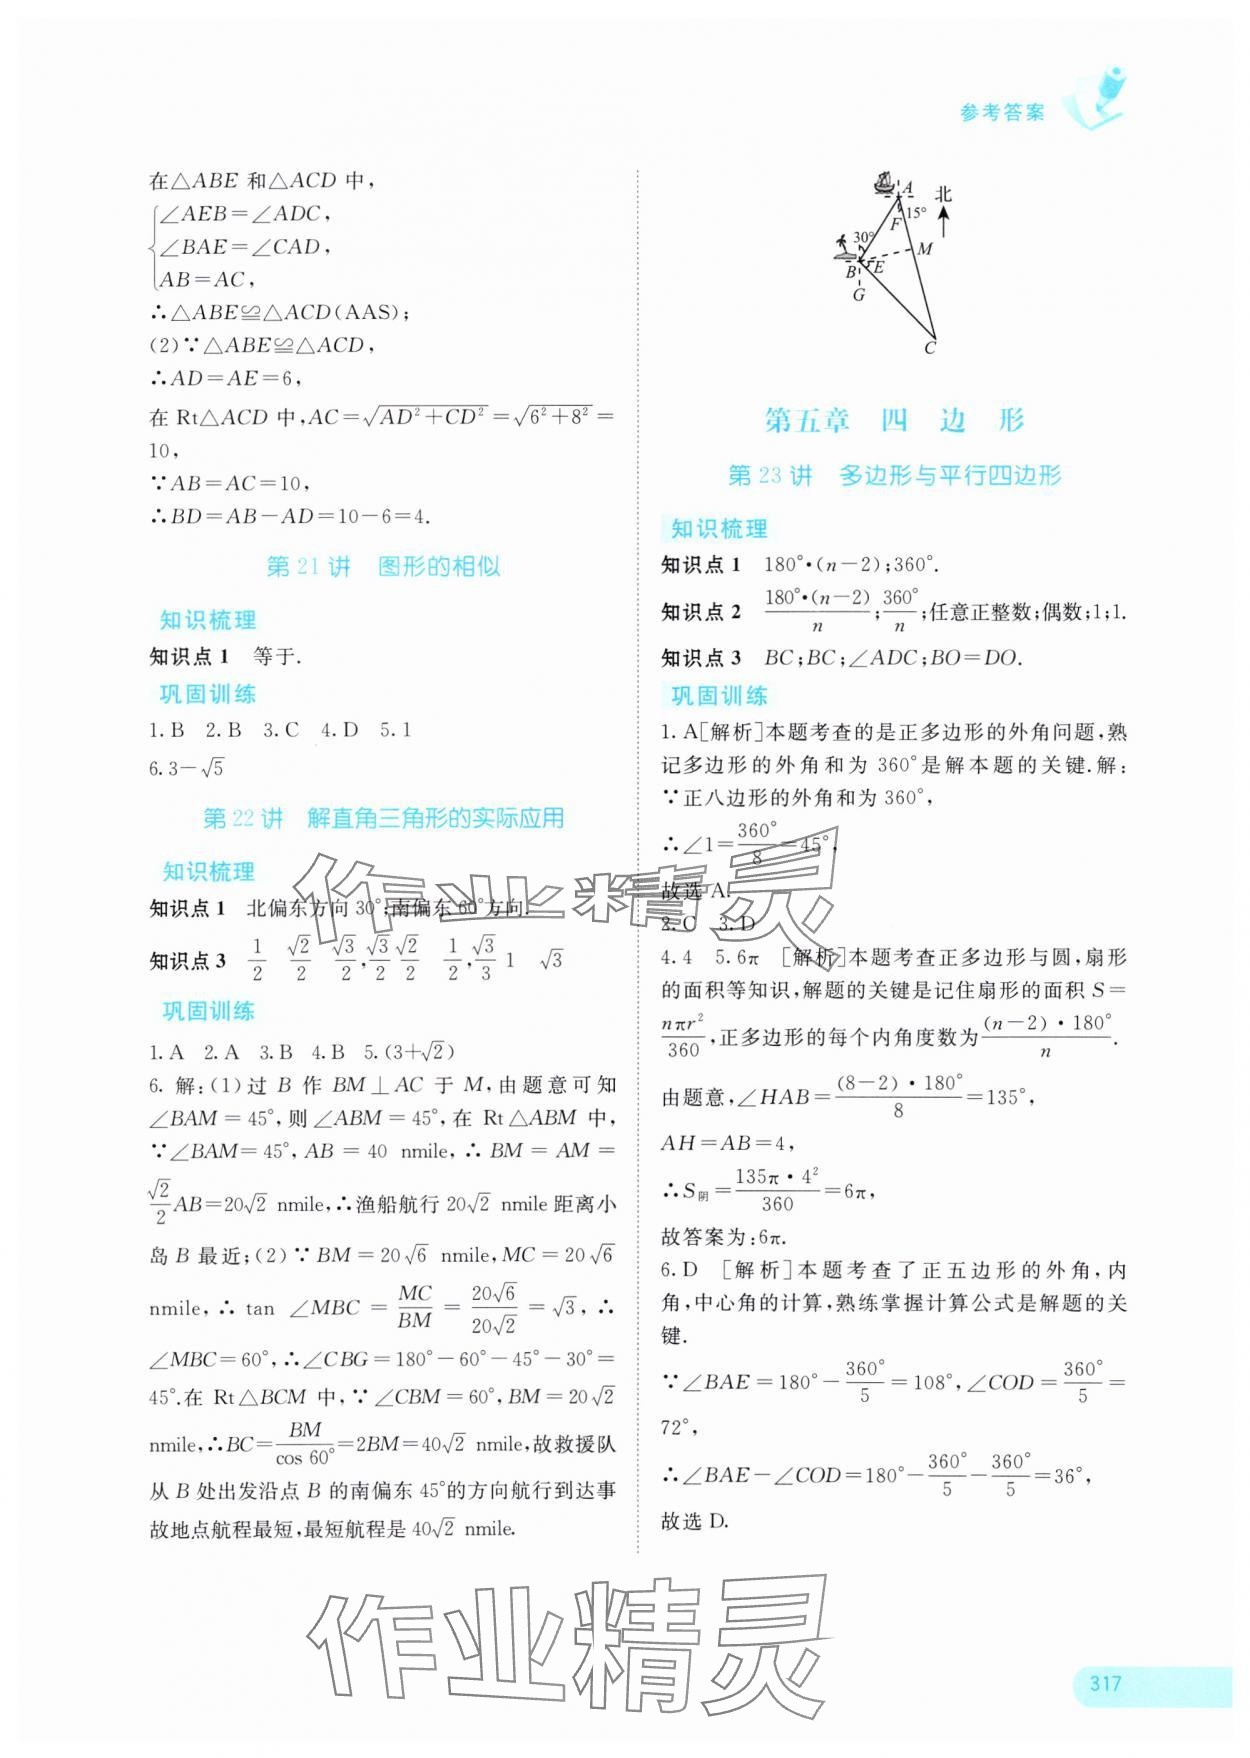 参考答案
在△ABE 和△ACD 中,
∠AEB=∠ADC,
∠BAE=∠CAD,
AB=AC,
∴△ABE≌△ACD(AAS);
(2)∵△ABE≌△ACD,
∴AD=AE=6,
在 Rt△ACD 中,AC=√(AD²+CD²)=√(6²+8²)=
10,
∵AB=AC=10,
∴BD=AB-AD=10-6=4.
第 21 讲 图形的相似
知识梳理
知识点 1 等于.
巩固训练
1. B 2. B 3. C 4. D 5. 1
6. 3-√5
第 22 讲 解直角三角形的实际应用
知识梳理
知识点 1 北偏东方向 30°;南偏东 60°方向.
知识点 3 1/2 √2/2 √3/2,√3/2 √2/2 1/2,√3/3 1 √3
巩固训练
1. A 2. A 3. B 4. B 5. (3+√2)
6. 解:(1)过 B 作 BM⊥AC 于 M,由题意可知
∠BAM=45°,则∠ABM=45°,在 Rt△ABM 中,
∵∠BAM=45°,AB=40 nmile,∴BM=AM=
√2/2 AB=20√2 nmile,∴渔船航行 20√2 nmile 距离小
岛 B 最近;(2)∵BM=20√6 nmile,MC=20√6
nmile,∴tan ∠MBC=MC/BM=20√6/20√2=√3,∴
∠MBC=60°,∴∠CBG=180°-60°-45°-30°=
45°.在 Rt△BCM 中,∵∠CBM=60°,BM=20√2
nmile,∴BC=BM/cos 60°=2BM=40√2 nmile,故救援队
从 B 处出发沿点 B 的南偏东 45°的方向航行到达事
故地点航程最短,最短航程是 40√2 nmile.
A
北
15°
F
30°
M
B
E
G
C
第五章 四 边 形
第 23 讲 多边形与平行四边形
知识梳理
知识点 1 180°·(n-2);360°.
知识点 2 180°·(n-2)/n;360°/n;任意正整数;偶数;1;1.
知识点 3 BC;BC;∠ADC;BO=DO.
巩固训练
1. A[解析]本题考查的是正多边形的外角问题,熟
记多边形的外角和为 360°是解本题的关键.解:
∵正八边形的外角和为 360°,
∴∠1=360°/8=45°,
故选 A.
2. C 3. D
4. 4 5. 6π [解析]本题考查正多边形与圆,扇形
的面积等知识,解题的关键是记住扇形的面积 S=
nπr²/360,正多边形的每个内角度数为(n-2)·180°/n.
由题意,∠HAB=(8-2)·180°/8=135°,
AH=AB=4,
∴S阴=135π·4²/360=6π,
故答案为:6π.
6. D [解析]本题考查了正五边形的外角,内
角,中心角的计算,熟练掌握计算公式是解题的关
键.
∵∠BAE=180°-360°/5=108°,∠COD=360°/5=
72°,
∴∠BAE-∠COD=180°-360°/5-360°/5=36°,
故选 D.
作业精灵
作业精灵
317